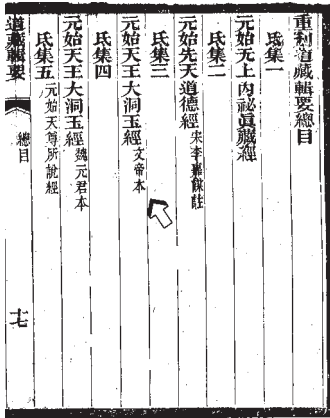 重刋道藏輯要總目
氐集一
元始无上內祕眞藏經
氐集二
元始先天道德經 宋李嘉謀註
氐集三
元始天王大洞玉經 文帝本
氐集四
元始天王大洞玉經 魏元君本
氐集五 元始天尊所說經
道藏輯要 總目 十七